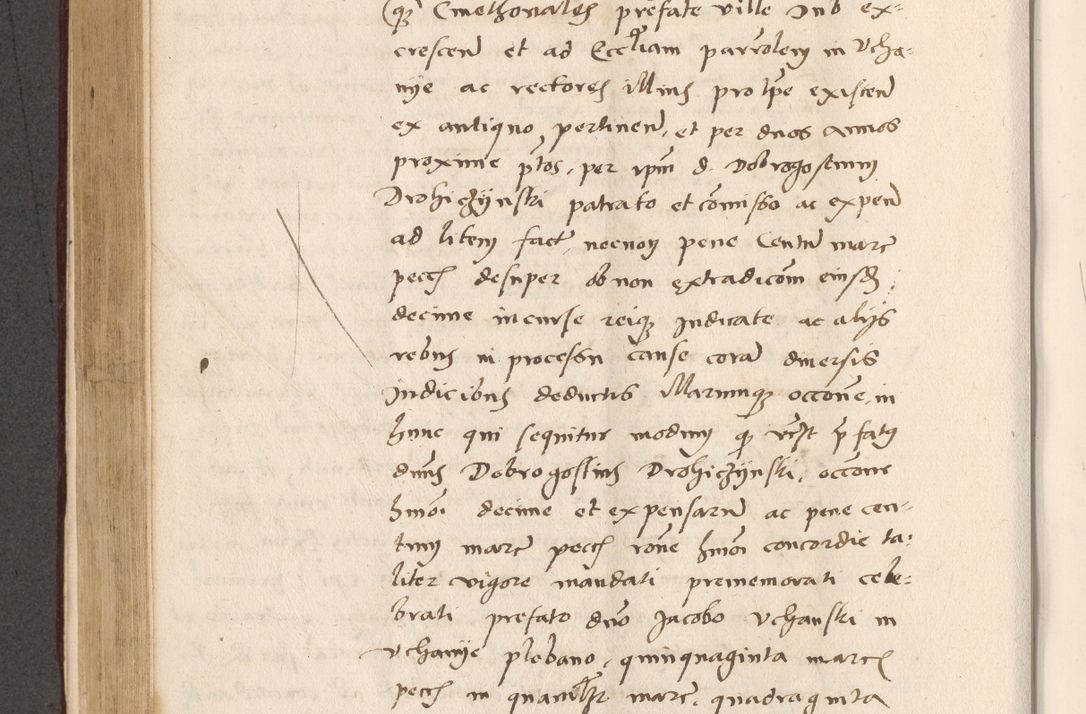 (q3 Cmethonales prefate ville sub ex-
crescen et ad Eccliam parrolem in Vcha-
nye ac rectores illius pro tpe existen
ex antiquo pertinen, et per duos annos
proxime ptos, per ipm d. Dobrogostium
Drohiczijnski patrato et comisso ac expen
ad litem fact, necnon pene Centu marc
pecc desuper ob non extradicom eiusd
decime incurse reiq3 Judicate ac alijs
rebus in processu cause cora diversis
Judicibus deductis illarumq3 occone, in
hunc qui sequitur modum q3 prefatus
dnus Dobrogostius Drohiczijnski, occone
hmoi decime et expensaru ac pene cen-
tum marc pecc rone hmoi concordie ta-
liter vigore mandati prememorati cele-
brati prefato dno Jacobo Vchanski in
Vchanye plebano, quinquaginta marc
pecc in marc, quadraginta